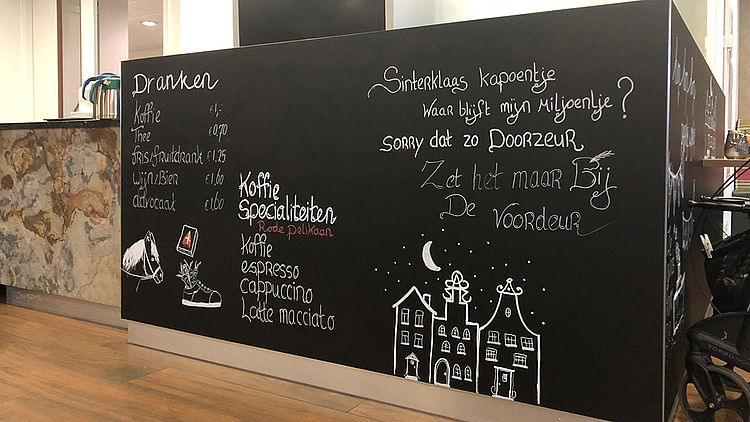 Dranken
Koffie €1,-
Thee €0,70
fris/fruitdrank €1,25
Wijn/Bier €1,60
advocaat €1,60
Koffie
Specialiteiten
Rode pelikaan
Koffie
espresso
cappuccino
Latte macciato
Sinterklaas kapoentje
Waar blijft mijn miljoentje?
sorry dat zo Doorzeur
Zet het maar Bij
De voordeur